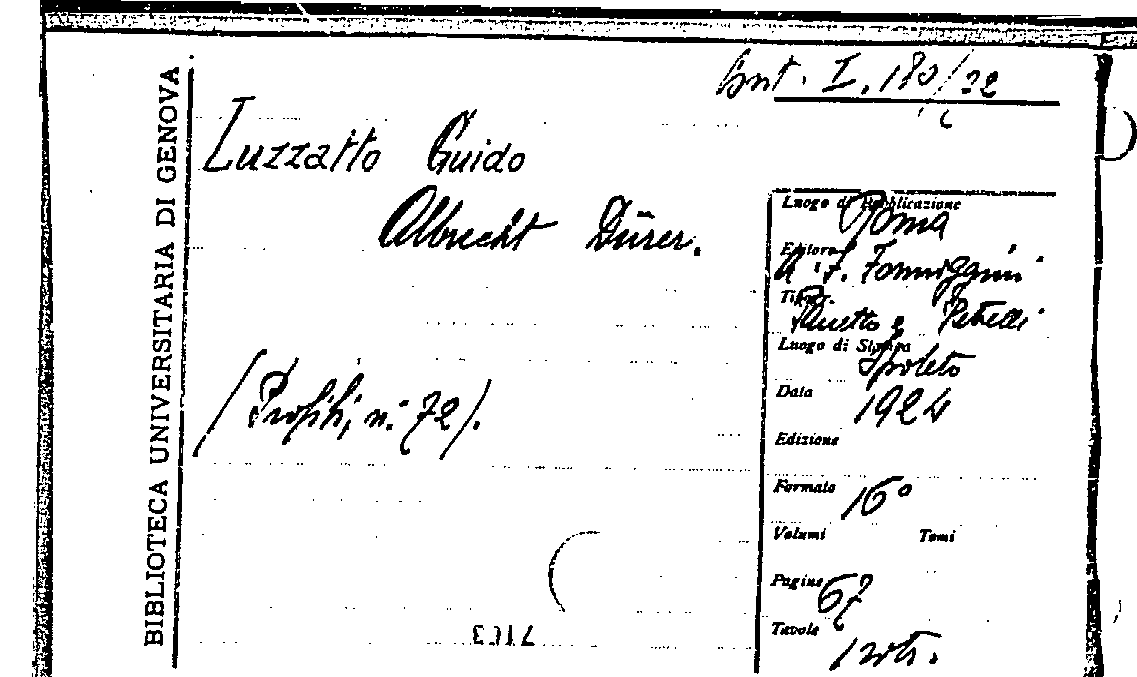 BIBLIOTECA UNIVERSITARIA DI GENOVA
I. 180/22
Luzzatto Guido
Albrecht Dürer.
(Profili, n. 72).
Luogo di Pubblicazione Roma
Editore A. F. Formiggini
Tipogr. e Petrelli
Luogo di Stampa Spoleto
Data 1924
Edizione
Formato 16°
Volumi Tomi
Pagine 67
Tavole 1
7103